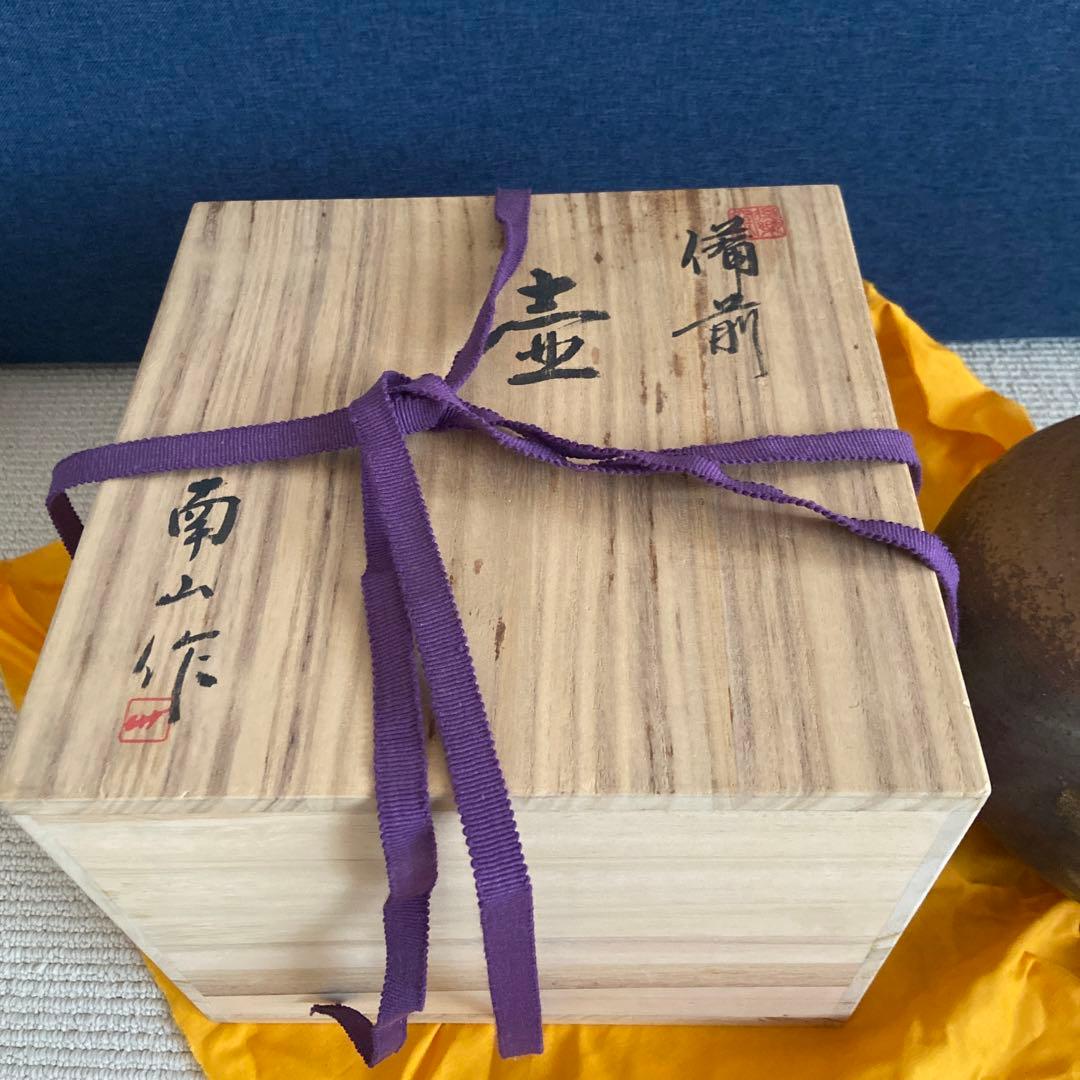 備前
壷
南山作